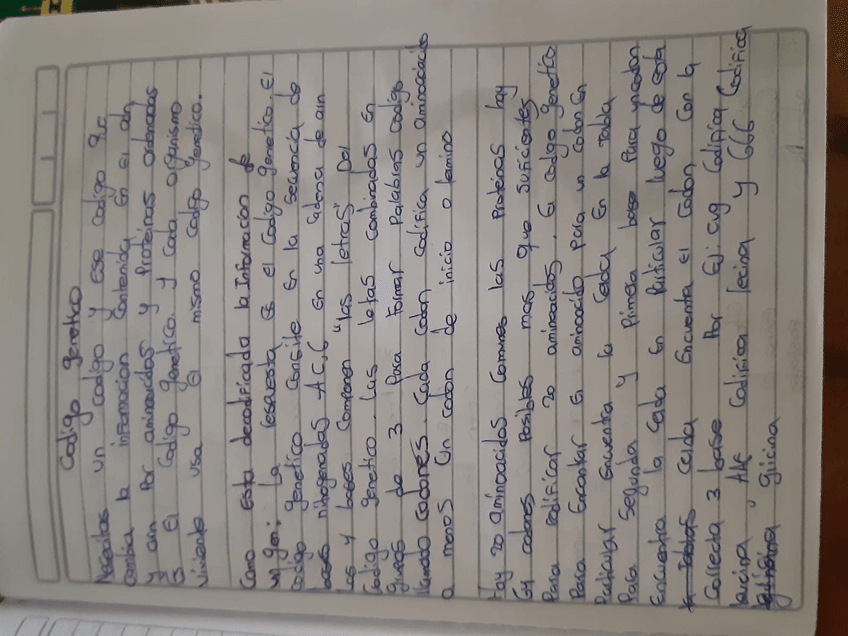 Codigo genetico
Necesitas un codigo y Ese codigo que
cambia la infomacion contenida En el adn
y arn Por aminoacidos y Proteinas ordenadas
Es El Codigo Genetico. y cada organismo
viviente usa El mismo codigo genetico.
Como Esta decodificada la Informacion de
un gen: La respuesta es el Codigo genetico. El
codigo genetico consite En la secuencia de
bases nitrogenadas A C, G En una cadena de arn
Las 4 bases Componen "las letras" Del
Codigo genetico. Las letas Combinadas En
de 3 Para Formar Palabras codigo
llamado codones. Cada Codon codifica un aminoacido
a menos Un codon de inicio o termino
Hay 20 aminoacidos Comunes las Proteinas hay
64 codones Posibles mas que suficientes
Para codificar 20 aminoacidos. El codigo genetico
Para Encontar En aminoacido Para un codon En
Paticular Encuentra la Celda En la tabla
Para Segunda y Pimera base Para un codon
Encuentra la Celda En Paticular luego de esta
Celda Encuentra El Codon Con la
Correcta 3 base Por Ej: cug Codifica
leucina, AAE Codifica lecina y GGG Codifica
glicina